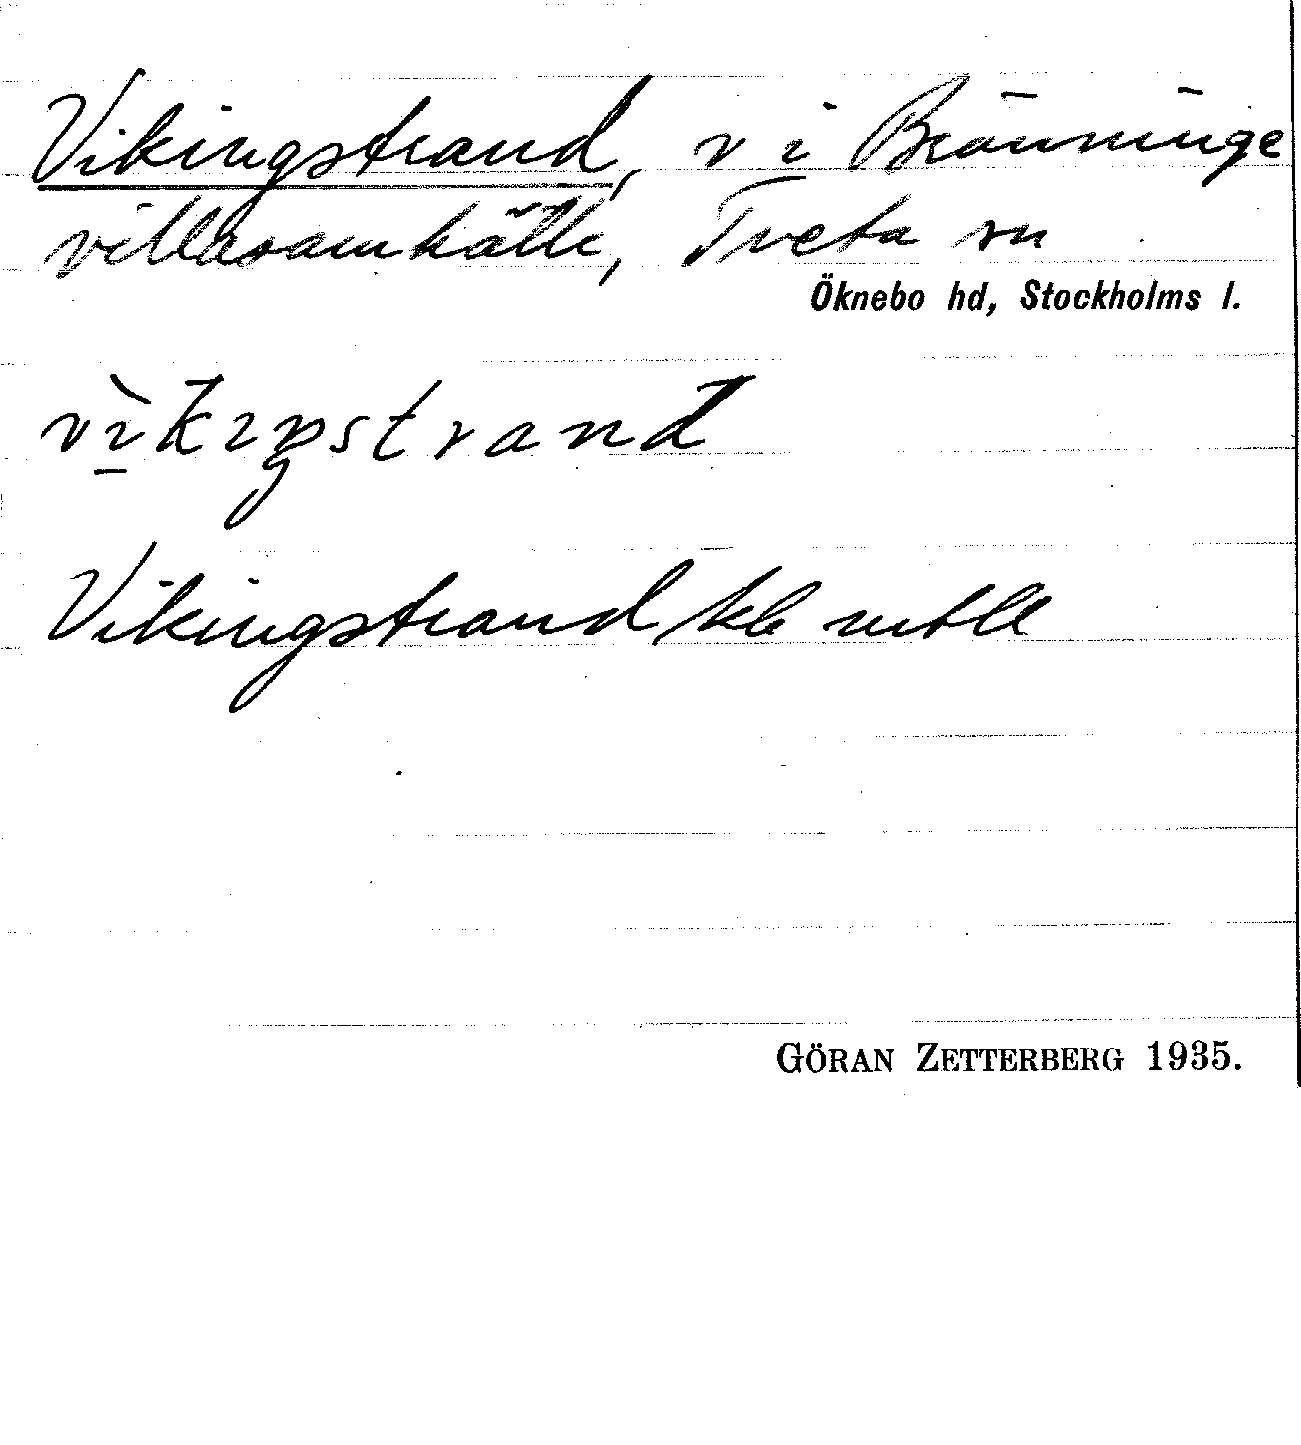 Vikingstrand, v i Bränninge
villasamhälle, Tveta sn
Öknebo hd, Stockholms l.
vìkiŋstrand
Vikingstrand kb mtll
GÖRAN ZETTERBERG 1935.